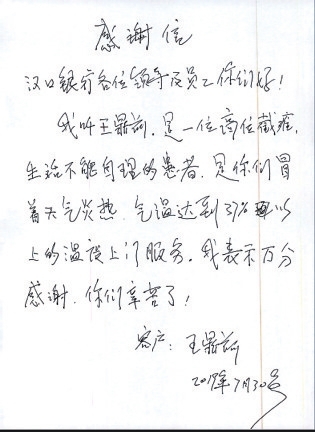 感谢信
汉口银行各位领导及员工你们好！
我叫王鼎新，是一位高位截瘫，
生活不能自理的患者，是你们冒
着天气炎热，气温达到37%以
上的温度上门服务，我表示万分
感谢，你们辛苦了！
客户：王鼎新
7月30号